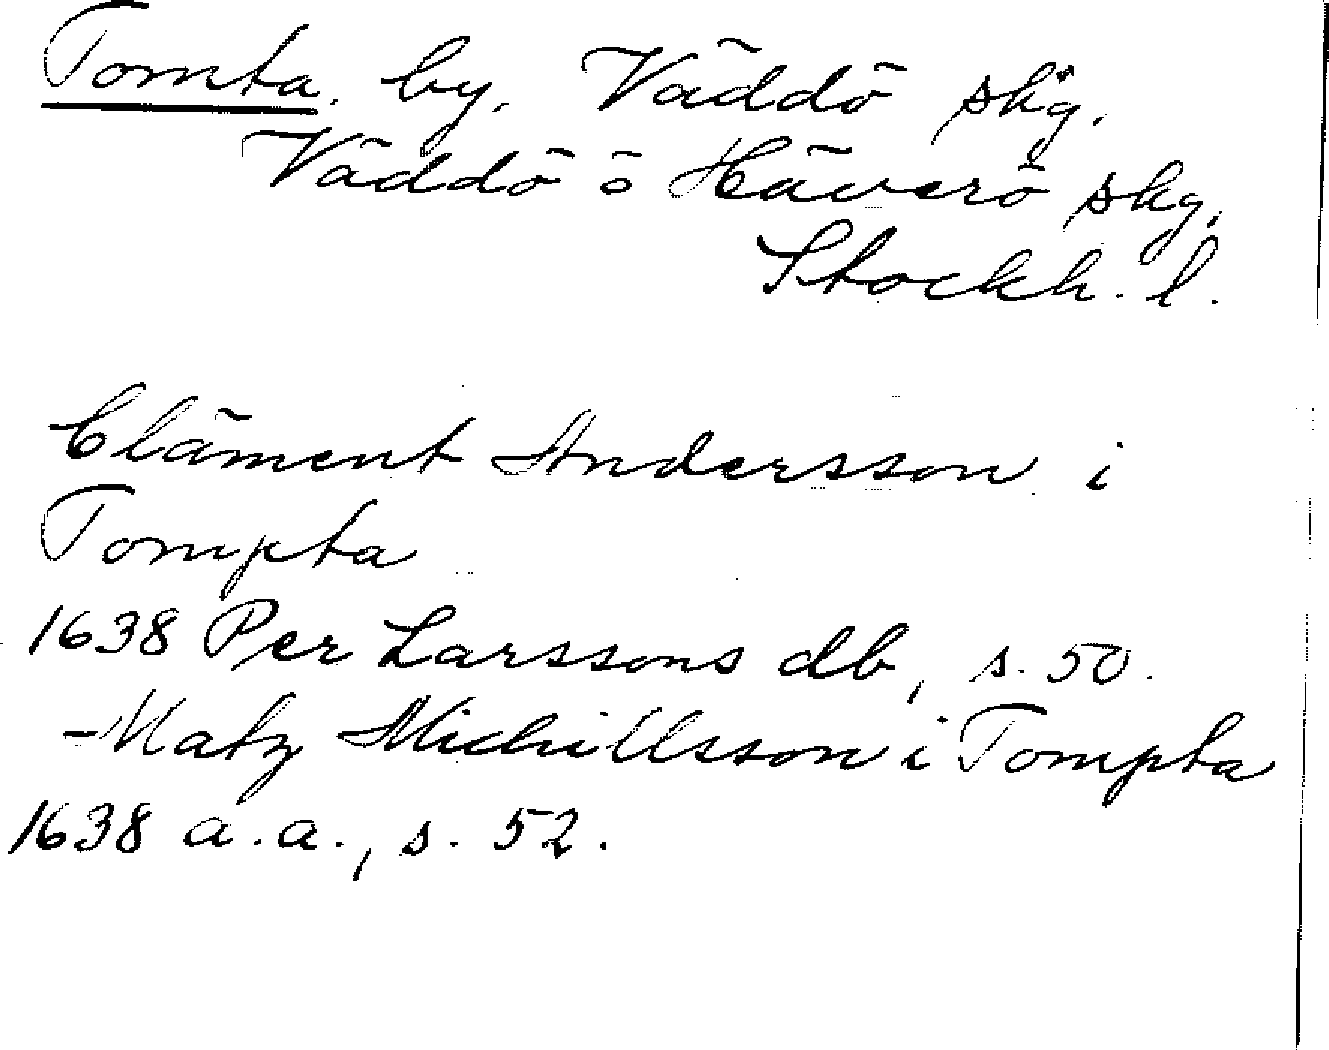 Tomta. by. Väddö skg.
Väddö o Häverö skg.
Stockh. l.
Cläment Andersson i
Tompta
1638 Per Larssons db, s. 50.
- Matz Michillsson i Tompta
1638 a.a., s. 52.